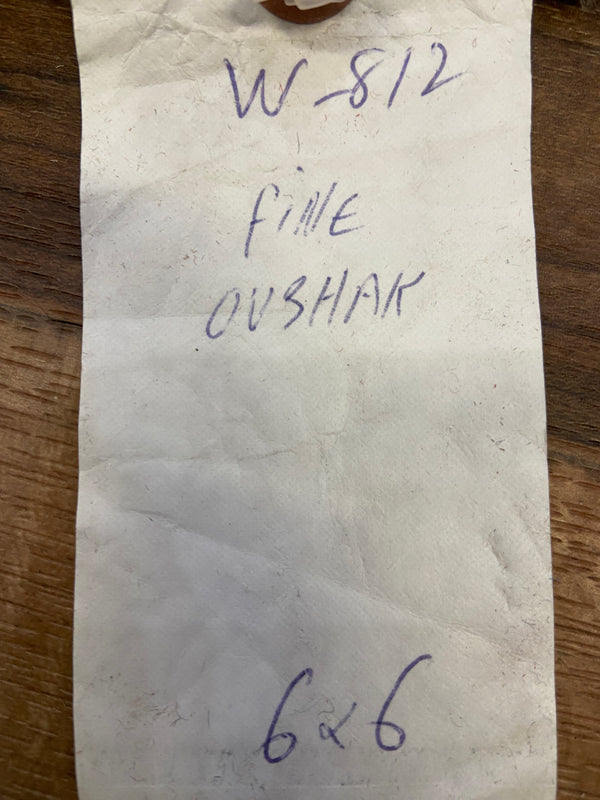 W-812
FINE
OUSHAK
6x6